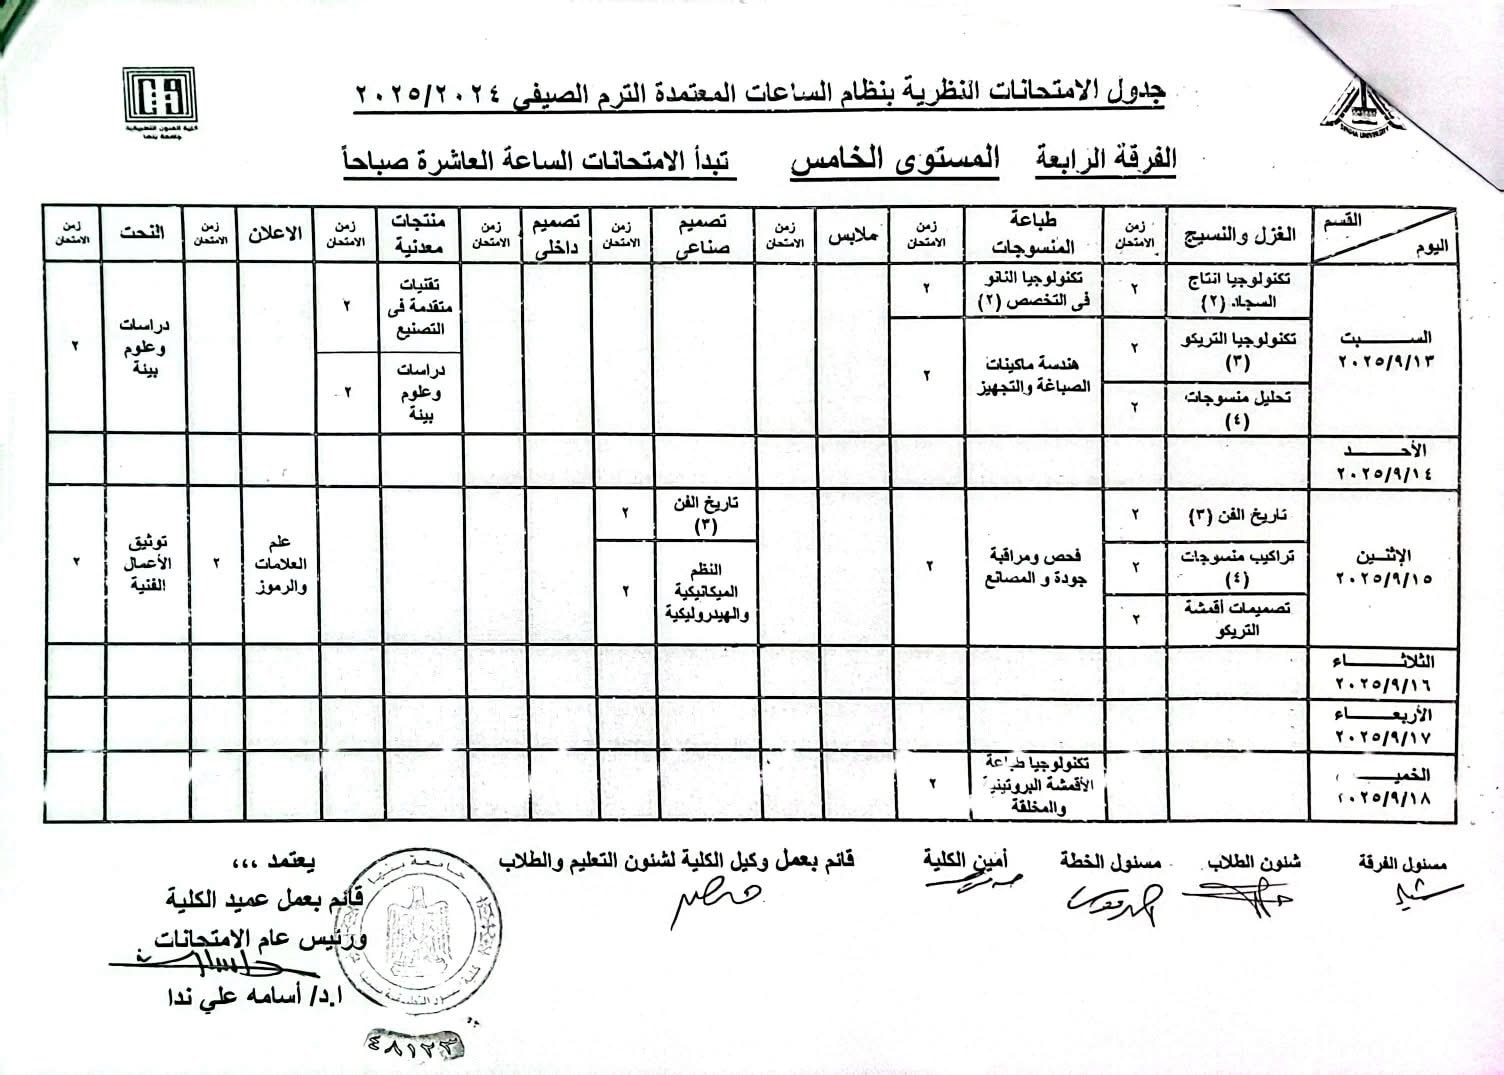 كلية الفنون التطبيقية
جامعة بنها
BENHA UNIVERSITY
جدول الامتحانات النظرية بنظام الساعات المعتمدة الترم الصيفي ٢٠٢٥/٢٠٢٤
الفرقة الرابعة المستوى الخامس تبدأ الامتحانات الساعة العاشرة صباحاً
القسم
اليوم
الغزل والنسيج
زمن
الامتحان
طباعة
المنسوجات
زمن
الامتحان
ملابس
زمن
الامتحان
تصميم
صناعي
زمن
الامتحان
تصميم
داخلي
زمن
الامتحان
منتجات
معدنية
زمن
الامتحان
الاعلان
زمن
الامتحان
النحت
زمن
الامتحان
السبت
٢٠٢٥/٩/١٣
تكنولوجيا انتاج
السجاد (٢)
٢
تكنولوجيا التريكو
(٣)
٢
تحليل منسوجات
(٤)
٢
تكنولوجيا النانو
فى التخصص (٢)
٢
هندسة ماكينات
الصباغة والتجهيز
٢
تقنيات
متقدمة فى
التصنيع
٢
دراسات
وعلوم
بيئة
٢
دراسات
وعلوم
بيئة
٢
الأحد
٢٠٢٥/٩/١٤
الإثنين
٢٠٢٥/٩/١٥
تاريخ الفن (٣)
٢
تراكيب منسوجات
(٤)
٢
تصميمات أقمشة
التريكو
٢
فحص ومراقبة
جودة و المصانع
٢
تاريخ الفن
(٣)
٢
النظم
الميكانيكية
والهيدروليكية
٢
علم
العلامات
والرموز
٢
توثيق
الأعمال
الفنية
٢
الثلاثاء
٢٠٢٥/٩/١٦
الأربعاء
٢٠٢٥/٩/١٧
الخميـ
٠٢٥/٩/١٨
تكنولوجيا طباعة
الأقمشة البروتينية
والمخلقة
٢
مسئول الفرقة
شئون الطلاب
مسئول الخطة
أمين الكلية
قائم بعمل وكيل الكلية لشئون التعليم والطلاب
يعتمد ،،،
قائم بعمل عميد الكلية
ورئيس عام الامتحانات
ا.د/ أسامه علي ندا
جامعة بنها
٤٨١٢٣